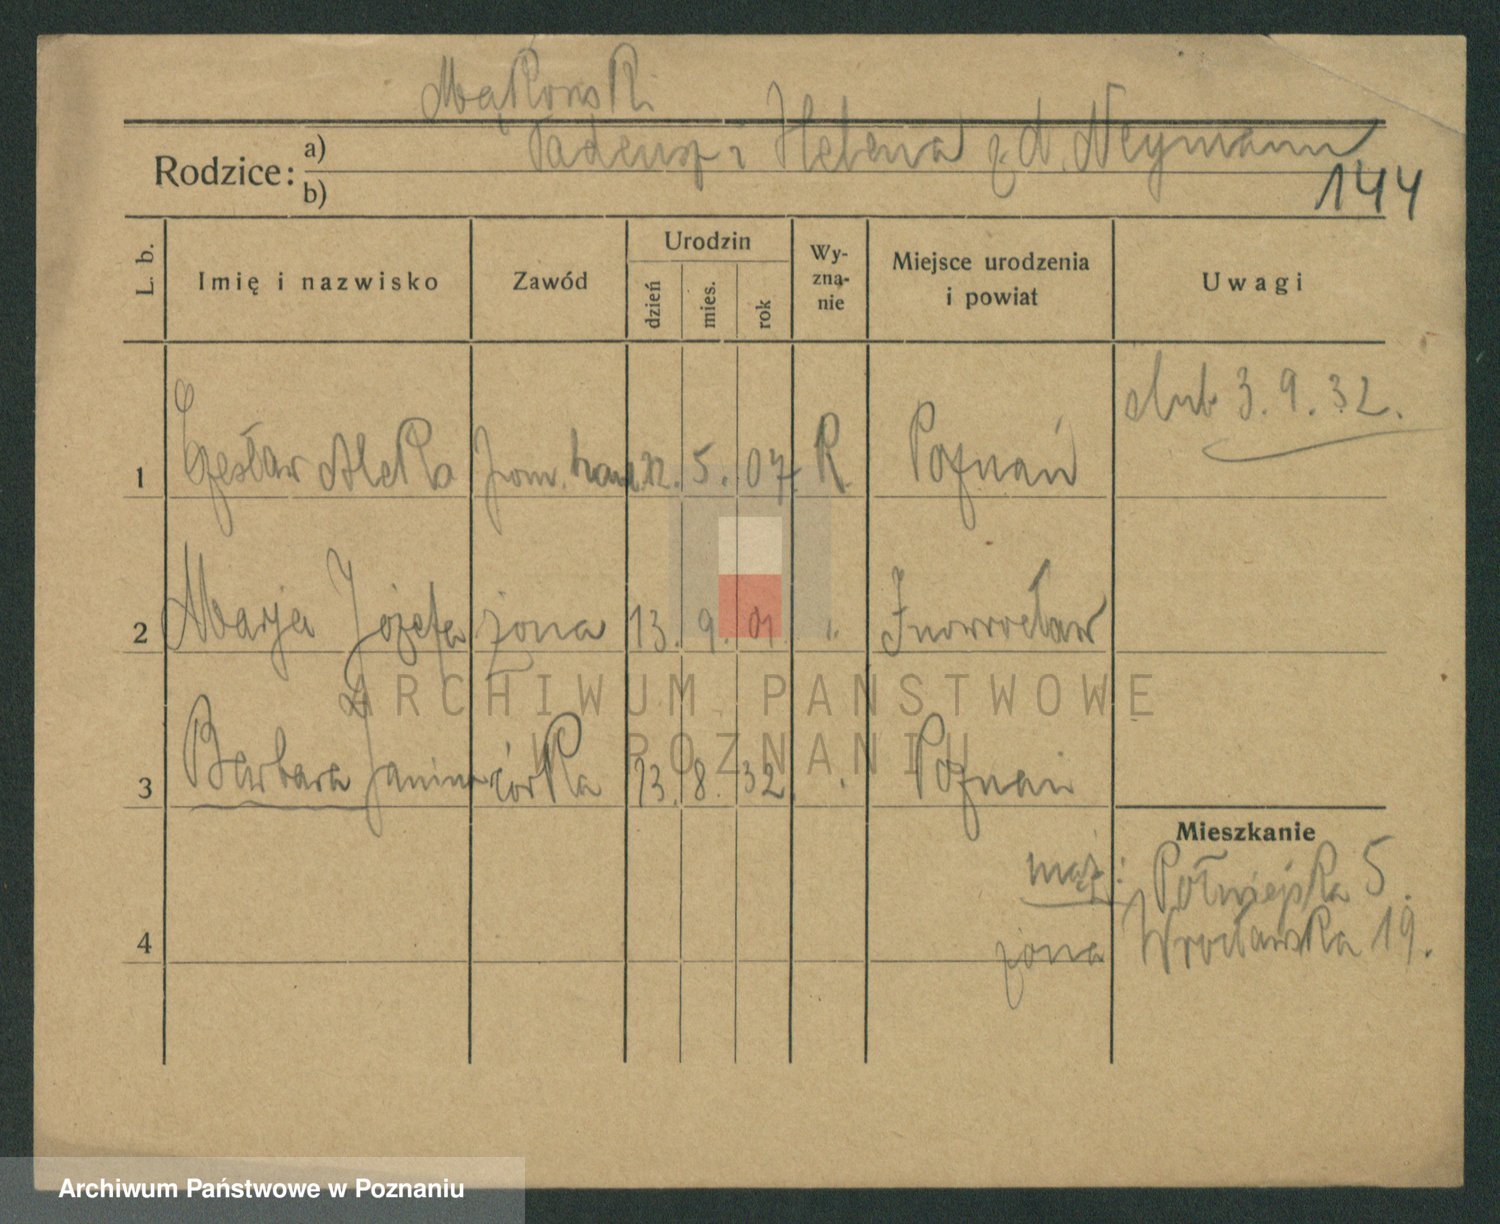 Mąkowski
Rodzice: a) Tadeusz i Helena z d. Neymann
b)
144
L. b. Imię i nazwisko Zawód Urodzin dzień mies. rok Wy-zna-nie Miejsce urodzenia i powiat Uwagi
ślub 3. 9. 32.
1 Czesław Aleks. pom. hand. 22. 5. 07. R. Poznań
2 Marja Józefa żona 13. 9. 01 ". Inowrocław
ARCHIWUM PAŃSTWOWE
W POZNANIU
3 Barbara Janina córka 13. 8. 32. . Poznań
Mieszkanie
mąż: Półwiejska 5.
4 żona Wrocławska 19.
Archiwum Państwowe w Poznaniu